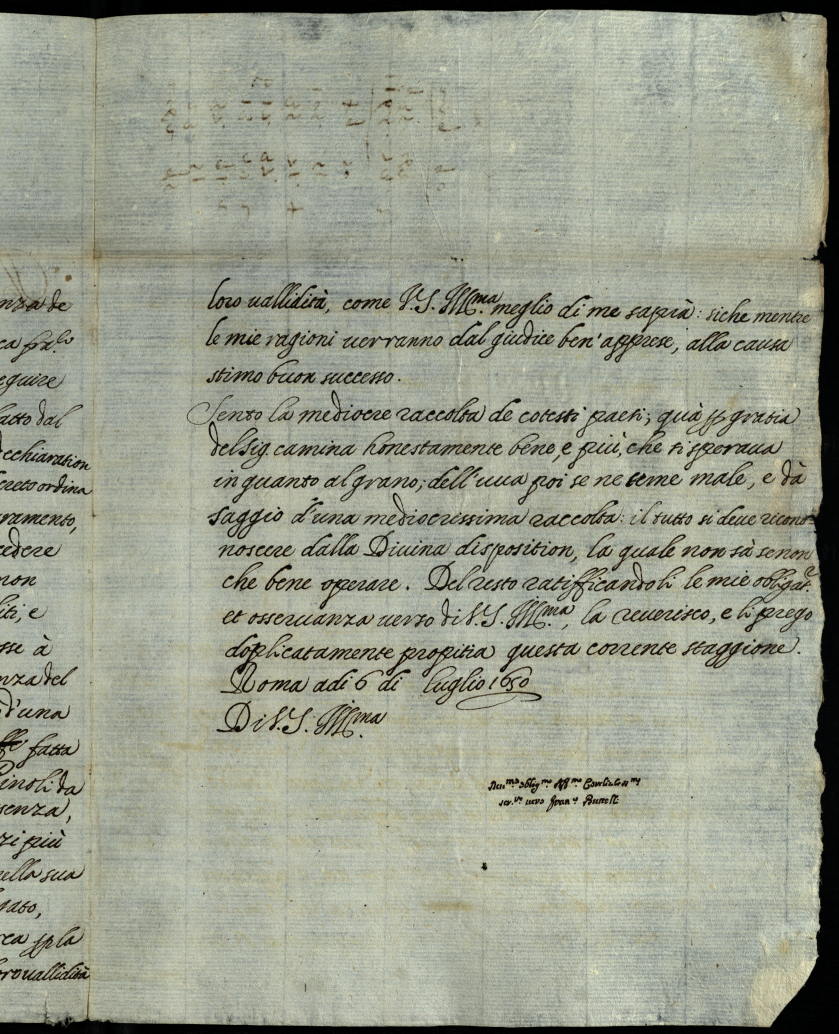 nza de
ca pr.lo
eguire
fatto dal
echiaration
creto ordina
ramento,
cedere
non
liti, e
sse à
nza del
d'una
fatta
inoli da
senza,
zi più
nella sua
gato,
rca p la
loro uallidità
loro uallidità, come V.S. Ill.ma meglio di me saprà: siche mentre
le mie ragioni uerranno dal giudice ben'apprese, alla causa
stimo buon successo.
Sento la mediocre raccolta de cotesti paesi; quà p gratia
del Sig camina honestamente bene, e più, che si speraua
in quanto al grano; dell'uua poi se ne teme male, e dà
saggio d'una mediocrissima raccolta: il tutto si deue ricono
noscere dalla Diuina disposition, la quale non sà se non
che bene operare. Del resto ratifficandoli le mie obligat.e
et osseruanza uerso di V.S. Ill.ma, la reuerisco, e li prego
doplicatamente propitia questa corrente staggione.
Roma adi 6 di luglio 1650
Di V.S. Ill.ma
oblig.mo
ser.re uero Fran.o